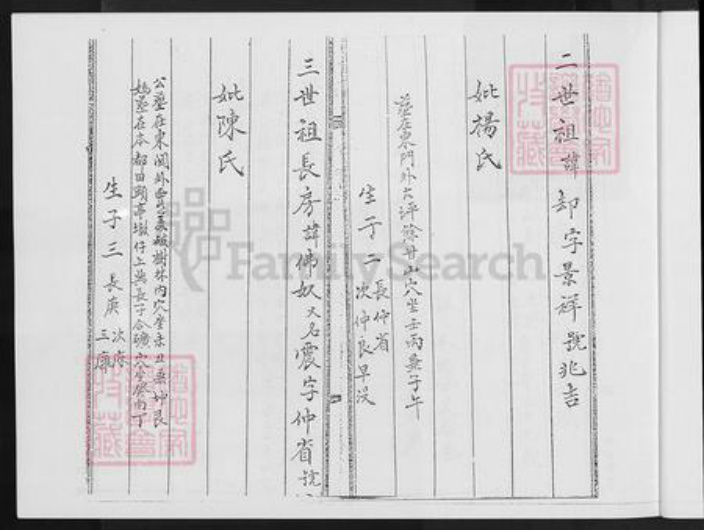 二世祖諱却字景祥號兆吉
妣楊氏
墓在東門外六坪 山穴坐壬丙兼子午
生子二 長仲省
次仲良早没
三世祖長房諱佛奴又名震字仲省號
妣陳氏
公墓在東関外 樹林内穴坐未丑兼坤艮
媽墓在本都田頭亭墩仔上與長子合礦穴坐癸向丁
生子三 長庚 次
三
FamilySearch